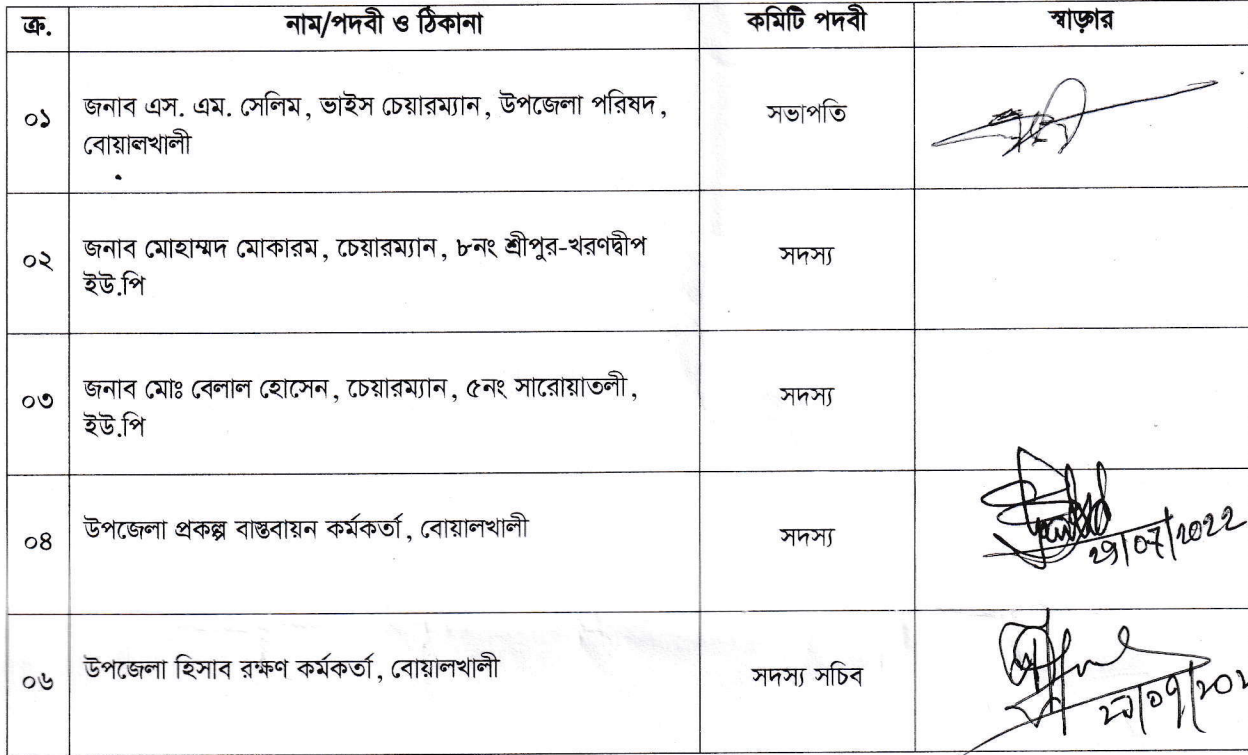 ক্র. নাম/পদবী ও ঠিকানা কমিটি পদবী স্বাক্ষর
০১ জনাব এস. এম. সেলিম, ভাইস চেয়ারম্যান, উপজেলা পরিষদ, সভাপতি
বোয়ালখালী
০২ জনাব মোহাম্মদ মোকারম, চেয়ারম্যান, ৮নং শ্রীপুর-খরণদ্বীপ সদস্য
ইউ.পি
০৩ জনাব মোঃ বেলাল হোসেন, চেয়ারম্যান, ৫নং সারোয়াতলী, সদস্য
ইউ.পি
০৪ উপজেলা প্রকল্প বাস্তবায়ন কর্মকর্তা, বোয়ালখালী সদস্য
29/07/2022
০৬ উপজেলা হিসাব রক্ষণ কর্মকর্তা, বোয়ালখালী সদস্য সচিব